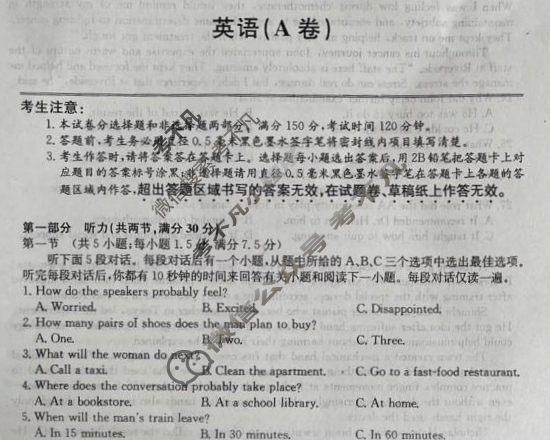 英语(A卷)
考生注意:
1. 本试卷分选择题和非选择题两部分。满分150分,考试时间120分钟。
2. 答题前,考生务必用直径0.5毫米黑色墨水签字笔将密封线内项目填写清楚。
3. 考生作答时,请将答案答在答题卡上。选择题每小题选出答案后,用2B铅笔把答题卡上对
应题目的答案标号涂黑;非选择题请用直径0.5毫米黑色墨水签字笔在答题卡上各题的答
题区域内作答,超出答题区域书写的答案无效,在试题卷、草稿纸上作答无效。
第一部分 听力(共两节,满分30分)
第一节 (共5小题;每小题1.5分,满分7.5分)
听下面5段对话。每段对话后有一个小题,从题中所给的A、B、C三个选项中选出最佳选项。
听完每段对话后,你都有10秒钟的时间来回答有关小题和阅读下一小题。每段对话仅读一遍。
1. How do the speakers probably feel?
A. Worried. B. Excited. C. Disappointed.
2. How many pairs of shoes does the man plan to buy?
A. One. B. Two. C. Three.
3. What will the woman do next?
A. Call a taxi. B. Clean the apartment. C. Go to a fast-food restaurant.
4. Where does the conversation probably take place?
A. At a bookstore. B. At a school library. C. At home.
5. When will the man's train leave?
A. In 15 minutes. B. In 30 minutes. C. In 60 minutes.